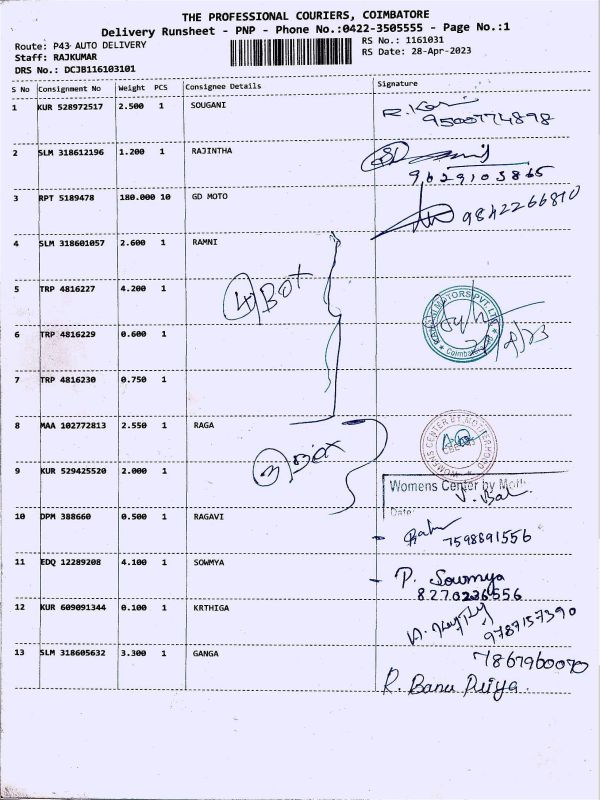 THE PROFESSIONAL COURIERS, COIMBATORE
Delivery Runsheet - PNP - Phone No.:0422-3505555 - Page No.:1
Route: P43 AUTO DELIVERY
RS No.: 1161031
Staff: RAJKUMAR
RS Date: 28-Apr-2023
DRS No.: DCJB116103101
S No Consignment No Weight PCS Consignee Details Signature
1 KUR 528972517 2.500 1 SOUGANI
9500774898
2 SLM 318612196 1.200 1 RAJINTHA
9629103865
3 RPT 5189478 180.000 10 GD MOTO
9842266810
4 SLM 318601057 2.600 1 RAMNI
4 Box
5 TRP 4816227 4.200 1
6 TRP 4816229 0.600 1
7 TRP 4816230 0.750 1
8 MAA 102772813 2.550 1 RAGA
3 Box
9 KUR 529425520 2.000 1
Womens Center by Moth
Date:
10 DPM 388660 0.500 1 RAGAVI
7598891556
11 EDQ 12289208 4.100 1 SOWMYA
P. Sowmya
8270236556
12 KUR 609091344 0.100 1 KRTHIGA
9787157390
13 SLM 318605632 3.300 1 GANGA
7867960070
R. Banu Priya.